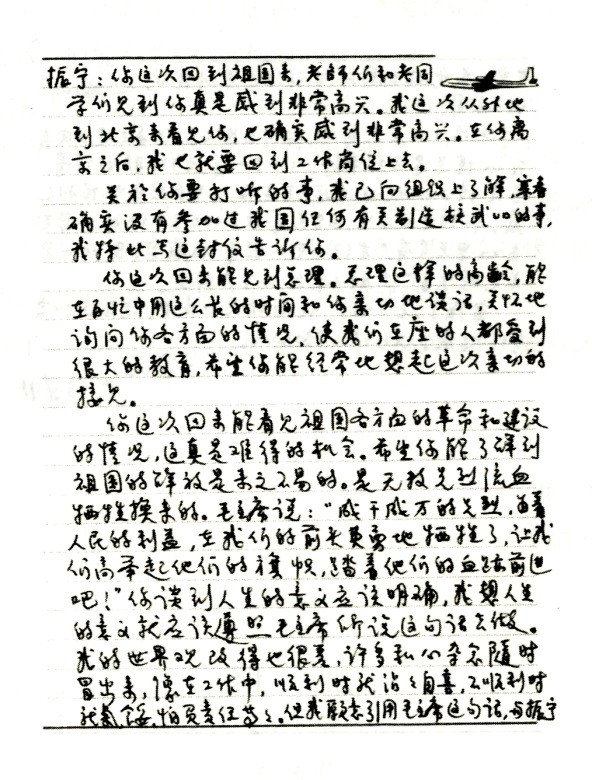 振宁：你这次回到祖国来，老師们和老同
学们见到你真是感到非常高兴。我这次从外地
到北京来看见你，也确实感到非常高兴。在你离
京之后，我也就要回到工作岗位上去。
关於你要打听的事，我已向组织上了解，寒春
确实没有参加过我国任何有关制造核武口的事，
我特此写这封信告诉你。
你这次回来能见到总理。总理这样的高龄，能
在百忙中用这么长的时间和你亲切地谈话，关怀地
询问你各方面的情况，使我们在座的人都受到
很大的教育，希望你能经常地想起这次亲切的
接见。
你这次回来能看见祖国各方面的革命和建设
的情况，这真是难得的机会。希望你能了解到
祖国的解放是来之不易的。是无数先烈流血
牺牲换来的。毛主席说：“成千成万的先烈，为着
人民的利益，在我们的前头英勇地牺牲了，让我
们高举起他们的旗帜，踏着他们的血跡前进
吧！”你谈到人生的意义应该明确，我想人生
的意义就应该遵照毛主席所说这句话去做。
我的世界观改得也很差，许多私心杂念随时
冒出来，像在工作中，顺利时就沾沾自喜，不顺利时
就氣餒，怕负责任等等。但我愿意引用毛主席这句话，与振宁